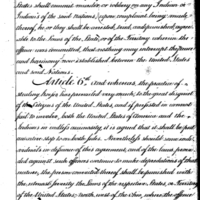 States shall commit murder or robbery on any Indian or
Indians of the said nations, upon complaint being made
thereof, he or they shall be arrested, tried, and punished agree-
able to the laws of the State, or of the Territory wherein the
offence was committed; that nothing may interrupt the peace
and harmony now established between the United States
and said Nations.
Article 6th And whereas, the practice of
stealing horses has prevailed very much, to the great disquiet
of the Citizens of the United States, and if persisted in cannot
fail to involve, both the United States of America and the
Indians in endless animosity, it is agreed that it shall be put
an entire stop to on both sides. Nevertheless should some
individuals in defiance of this agreement, and of the laws provi-
ded against such offences continue to make depredations of that
nature, the person convicted thereof shall be punished with
the utmost severity the laws of the respective States, or Territory
of the United States, north west of the Ohio, where the offence